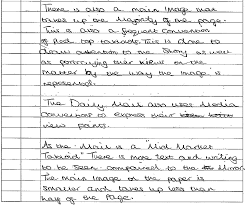 There is also a main image that
takes up the majority of the page.
This is also a frequent convention
of Red top tabloids. This is done to
draw attention to the story as well
as portraying their views on the
matter by the way the image is
represented.
The Daily Mail also uses Media
conventions to express their
view point.
As the Mail is a "Mid Market
Tabloid" There is more text and writing
to be seen compared to the Mirror.
The main image on the paper is
smaller and takes up less than
half of the page.